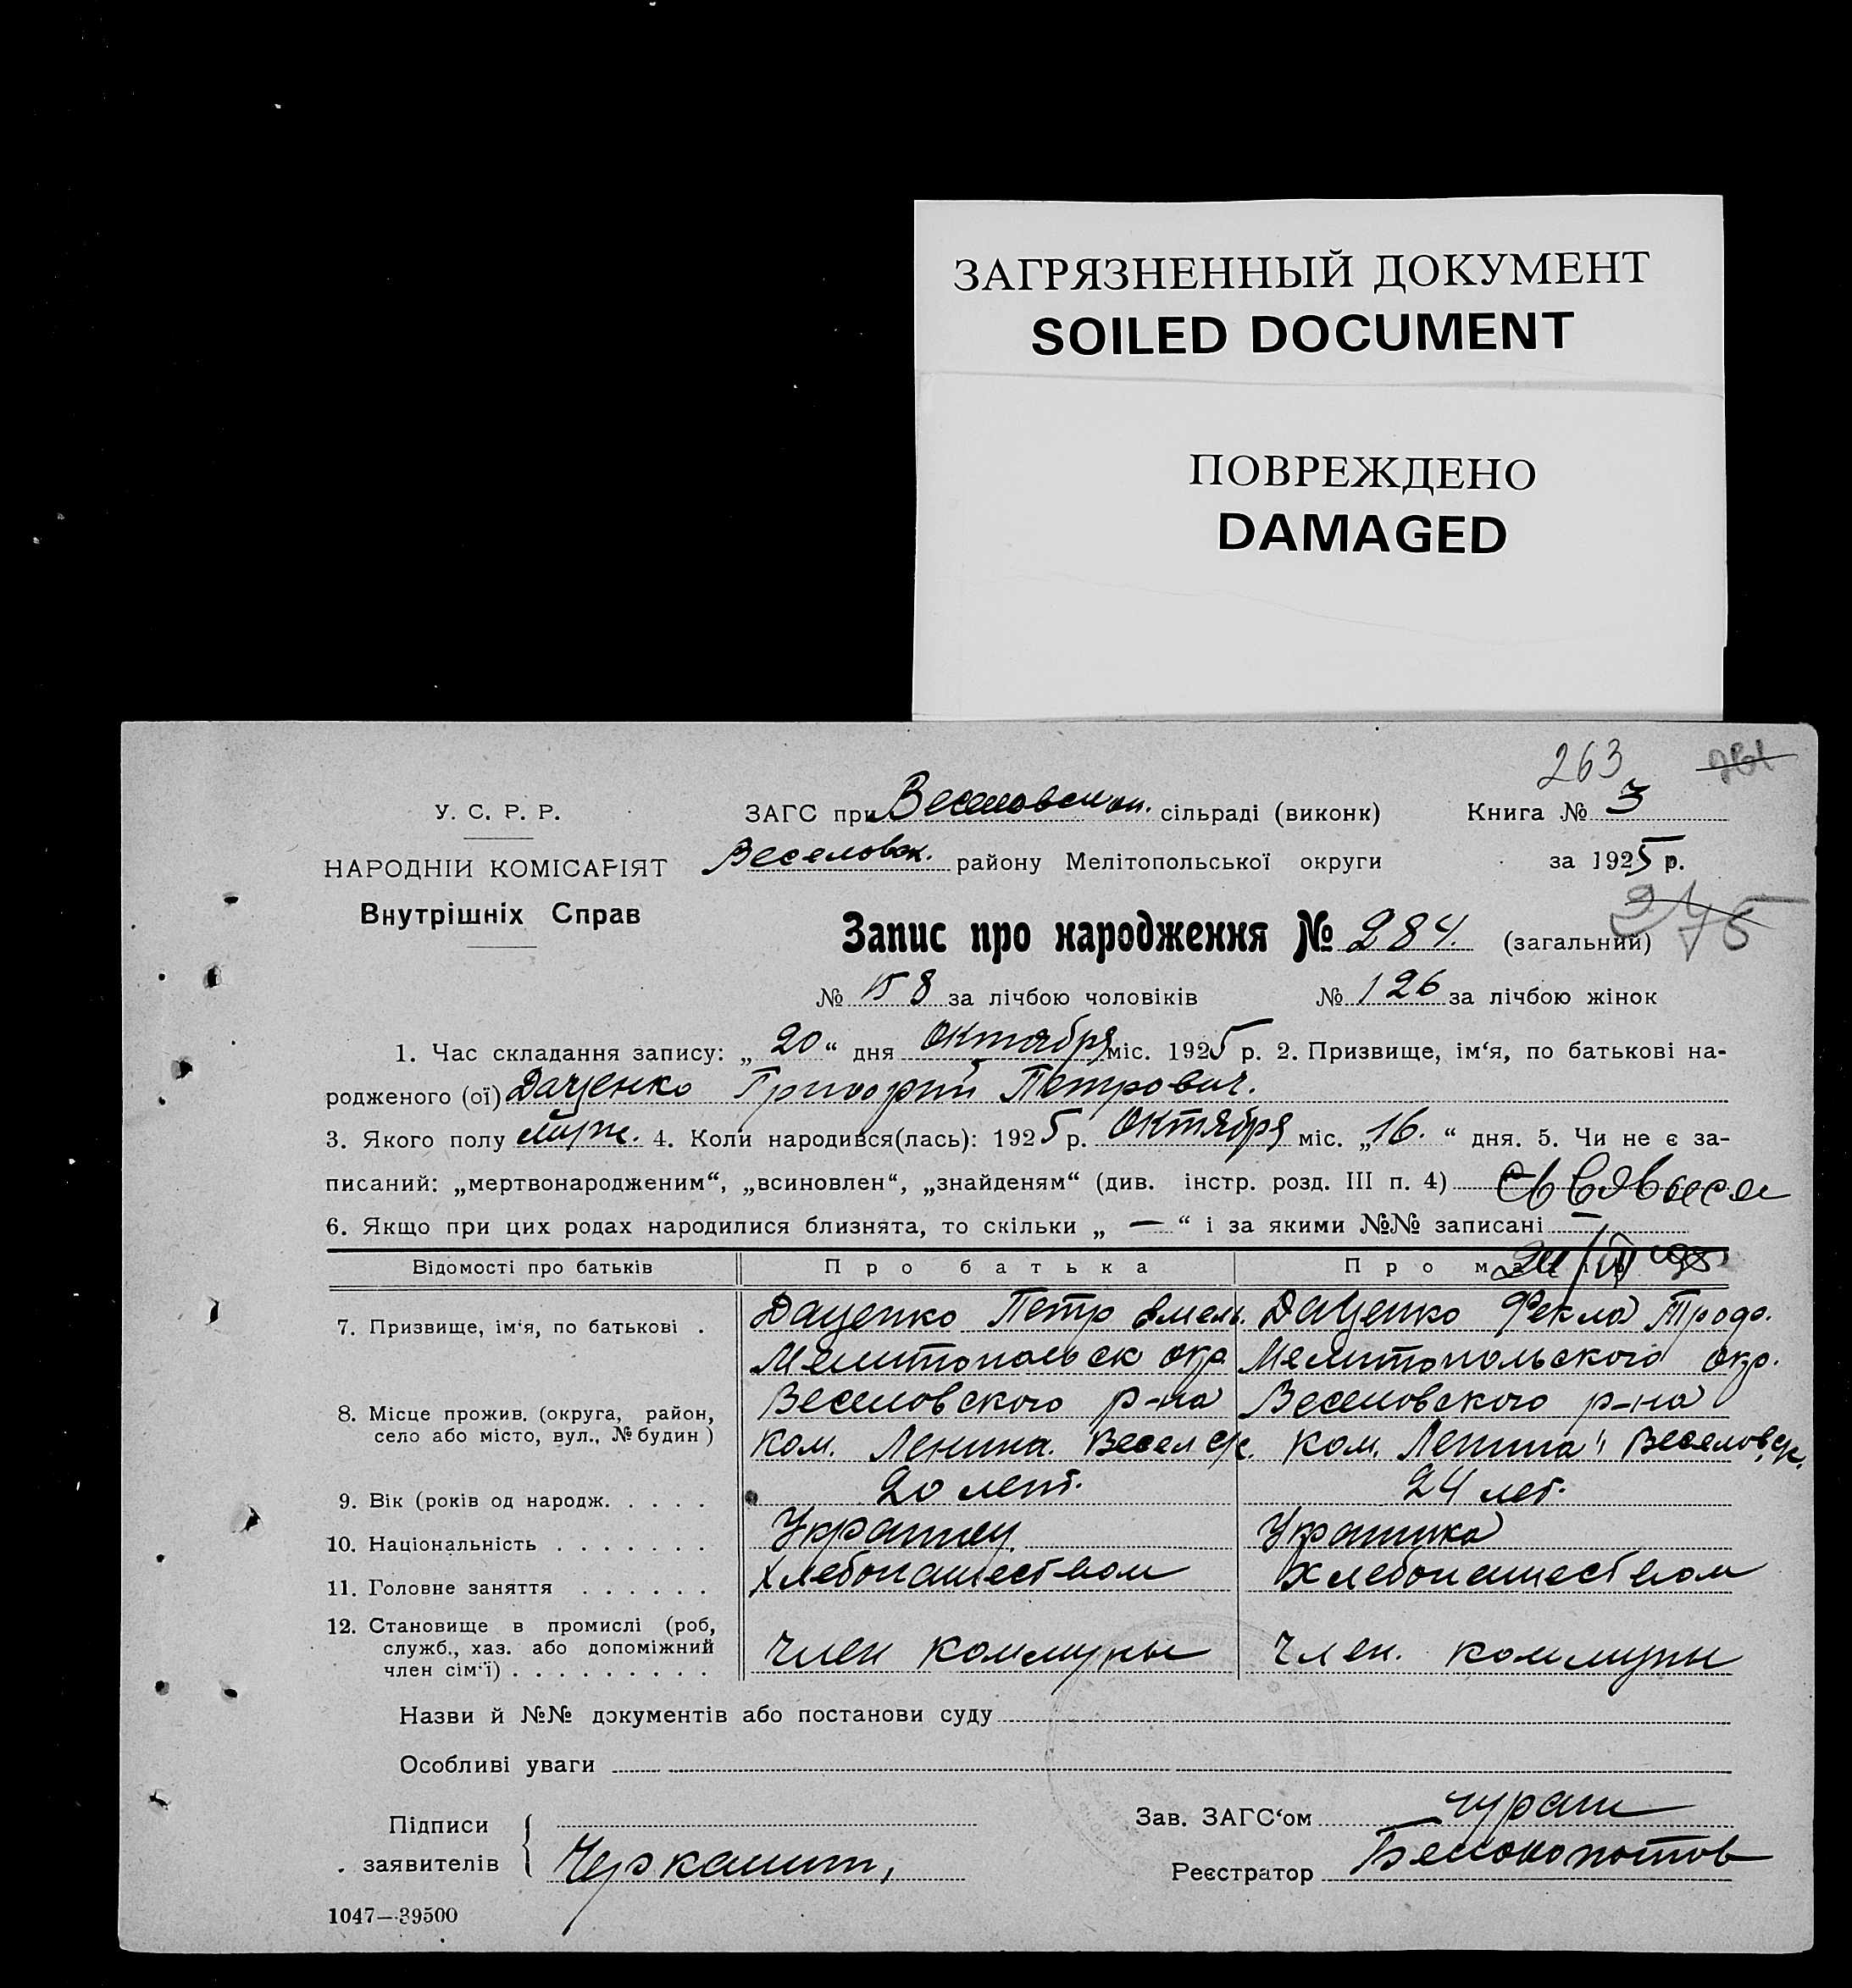 ЗАГРЯЗНЕННЫЙ ДОКУМЕНТ
SOILED DOCUMENT
ПОВРЕЖДЕНО
DAMAGED
263
У. С. Р. Р.
ЗАГС при Веселовском. сільраді (виконк) Книга № 3
НАРОДНІЙ КОМІСАРІЯТ
Веселовск. району Мелітопольської округи за 1925 р.
Внутрішніх Справ
275
Запис про народження № 284. (загальний)
№ 158 за лічбою чоловіків № 126 за лічбою жінок
1. Час складання запису: „ 20 “ дня Октября міс. 1925 р. 2. Призвище, ім‘я, по батькові на-
родженого (ої) Даценко Григорий Петрович.
3. Якого полу муж. 4. Коли народився(лась): 1925 р. Октября міс. „16. “ дня. 5. Чи не є за-
писаний: „мертвонародженим“, „всиновлен“, „знайденям“ (див. інстр. розд. III п. 4)
6. Якщо при цих родах народилися близнята, то скільки „ — “ і за якими №№ записані —
Відомості про батьків Про батька Про матір
7. Призвище, ім‘я, по батькові . Даценко Петр Емель. Даценко Фекла Трофо.
Мелитопольск окр. Мелитопольского окр.
8. Місце прожив. (округа, район, село або місто, вул., № будин) Веселовского р-на Веселовского р-на
ком. Ленина. Весел с/с. ком. Ленина" Веселовск.
9. Вік (років од народж. . . . . 20 лет. 24 лет.
10. Національність . . . . . . . Украинец Украинка
11. Головне заняття . . . . . . Хлебопашеством Хлебопашеством
12. Становище в промислі (роб,
служб., хаз. або допоміжний
член сім‘ї) . . . . . . . . . член коммуны член. коммуны
Назви й №№ документів або постанови суду
Особливі уваги
Підписи
заявителів
Зав. ЗАГС‘ом
Реєстратор Белокопытов
1047—39500